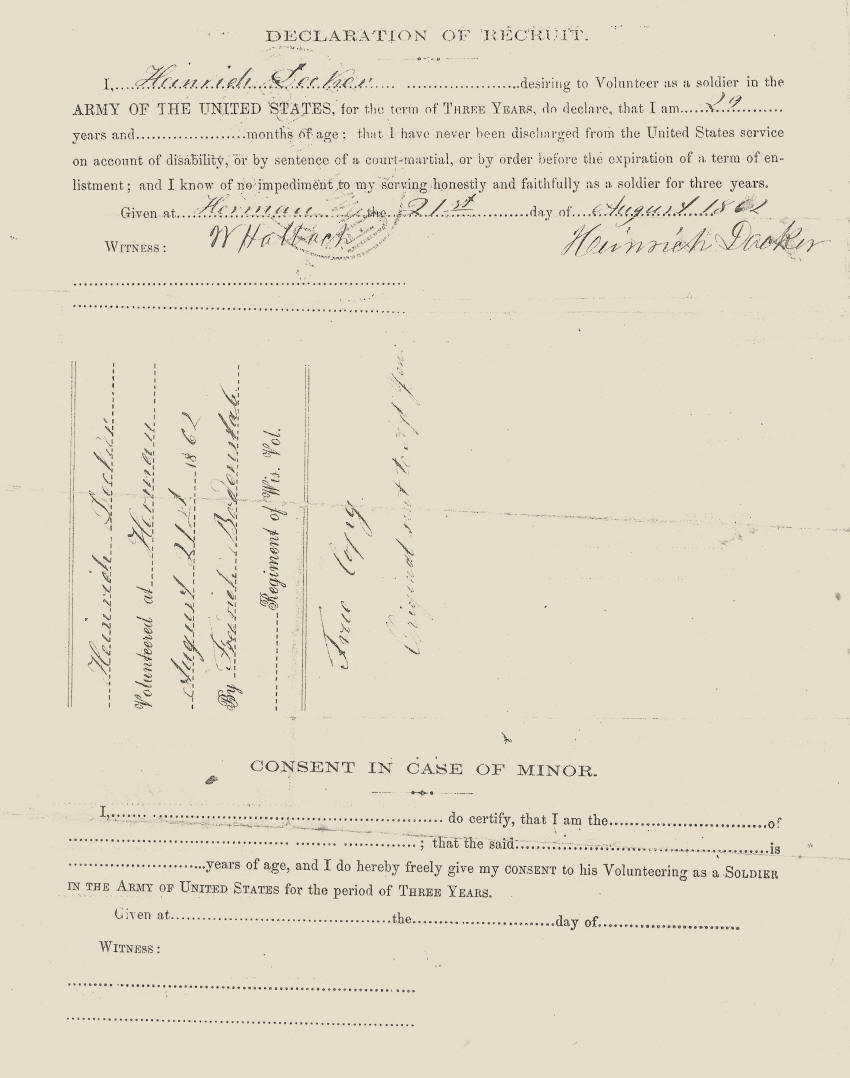 DECLARATION OF RECRUIT.
I, Heinrich Decker desiring to Volunteer as a soldier in the
ARMY OF THE UNITED STATES, for the term of THREE YEARS, do declare, that I am 29
years and months of age; that I have never been discharged from the United States service
on account of disability, or by sentence of a court-martial, or by order before the expiration of a term of en-
listment; and I know of no impediment to my serving honestly and faithfully as a soldier for three years.
Given at Herman the 21st day of August 1862
WITNESS: W Hattach Heinrich Docker
Heinrich
Volunteered at Herman
August 21st 1862
By
Regiment of Wis. Vol.
True Copy
Original sent to
CONSENT IN CASE OF MINOR.
I, do certify, that I am the of
; that the said is
years of age, and I do hereby freely give my CONSENT to his Volunteering as a SOLDIER
IN THE ARMY OF UNITED STATES for the period of THREE YEARS.
Given at the day of
WITNESS: